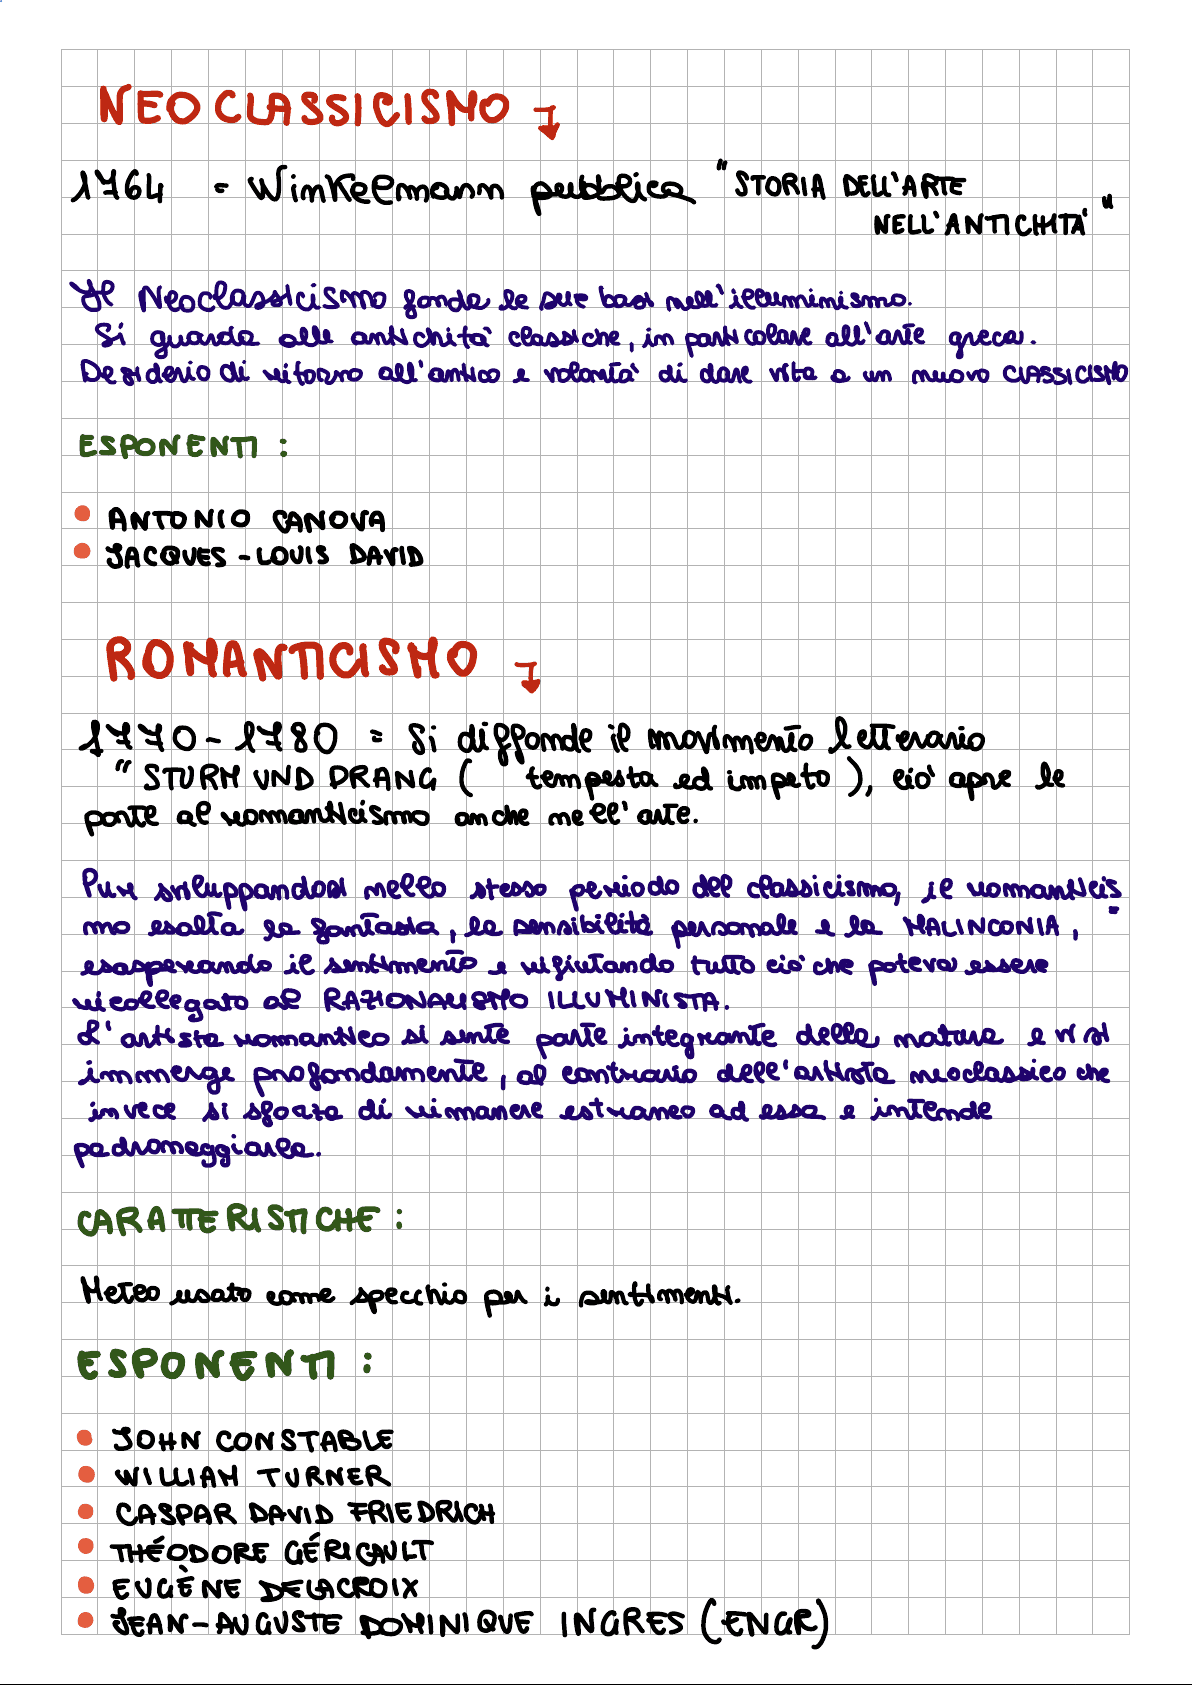 NEOCLASSICISMO
1764 = Winkelmann pubblica "STORIA DELL'ARTE
NELL'ANTICHITÀ"
Il Neoclassicismo fonda le sue basi nell'illuminismo.
Si guarda alle antichità classiche, in particolare all'arte greca.
Desiderio di ritorno all'antico e volontà di dare vita a un nuovo CLASSICISMO
ESPONENTI:
• ANTONIO CANOVA
• JACQUES-LOUIS DAVID
ROMANTICISMO
1770-1780 = Si diffonde il movimento letterario
"STURM UND DRANG ( tempesta ed impeto ), ciò apre le
porte al romanticismo anche nell'arte.
Pur sviluppandosi nello stesso periodo del classicismo, il romanticis
mo esalta la fantasia, la sensibilità personale e la MALINCONIA,
esasperando il sentimento e rifiutando tutto ciò che poteva essere
ricollegato al RAZIONALISMO ILLUMINISTA.
L'artista romantico si sente parte integrante della natura e vi si
immerge profondamente, al contrario dell'artista neoclassico che
invece si sforza di rimanere estraneo ad essa e intende
padroneggiarla.
CARATTERISTICHE:
Meteo usato come specchio per i sentimenti.
ESPONENTI:
• JOHN CONSTABLE
• WILLIAM TURNER
• CASPAR DAVID FRIEDRICH
• THÉODORE GÉRICAULT
• EUGÈNE DELACROIX
• JEAN-AUGUSTE DOMINIQUE INGRES (ENGR)